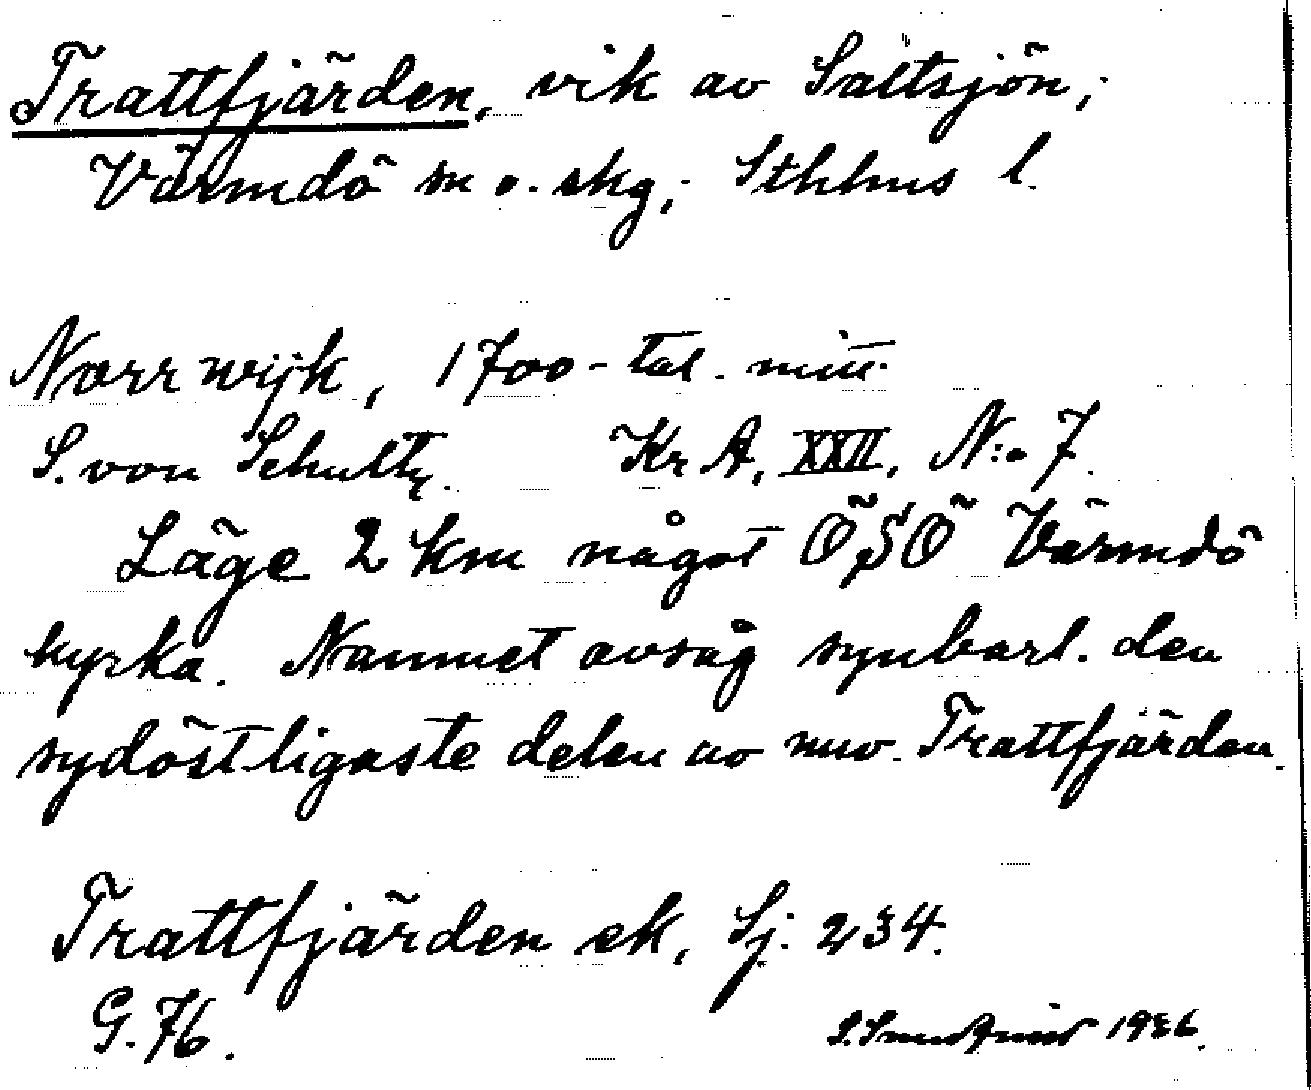 Trattfjärden, vik av Saltsjön,
Värmdö sn o. skg, Sthlms l.
Norrwijk, 1700-tal. mitt.
S. von Schultz. Kr A, XXII, N:o 7.
Läge 2 km något ÖSÖ Värmdö
kyrka. Namnet avsåg synbarl. den
sydöstligaste delen av nuv. Trattfjärden.
Trattfjärden ek, Sj. 234.
G. 76.
1936.